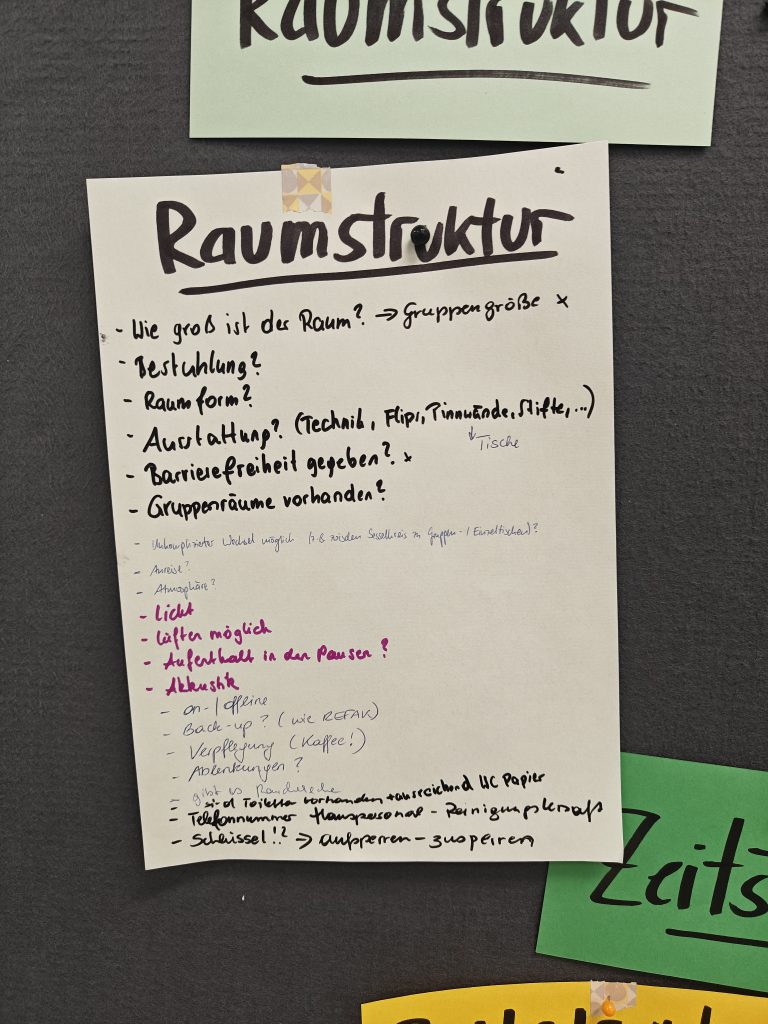 Raumstruktur
Raumstruktur
- Wie groß ist der Raum? → Gruppengröße x
- Bestuhlung?
- Raumform?
- Ausstattung? (Technik, Flips, Pinnwände, Stifte, ...)
↓ Tische
- Barrierefreiheit gegeben? x
- Gruppenräume vorhanden?
- Unkomplizierter Wechsel möglich (z.B. zwischen Sesselkreis zu Gruppen-/Einzeltischen)?
- Anreise?
- Atmosphäre?
- Licht
- Lüften möglich
- Aufenthalt in den Pausen?
- Akkustik
- on-/offline
- Back-up? (wie REFAK)
- Verpflegung (Kaffee!)
- Ablenkungen?
- gibt es
- sind Toiletten vorhanden + ausreichend WC Papier
- Telefonnummer Hauspersonal - Reinigungskraft
- Schlüssel!? → aufsperren - zusperren
Zeits